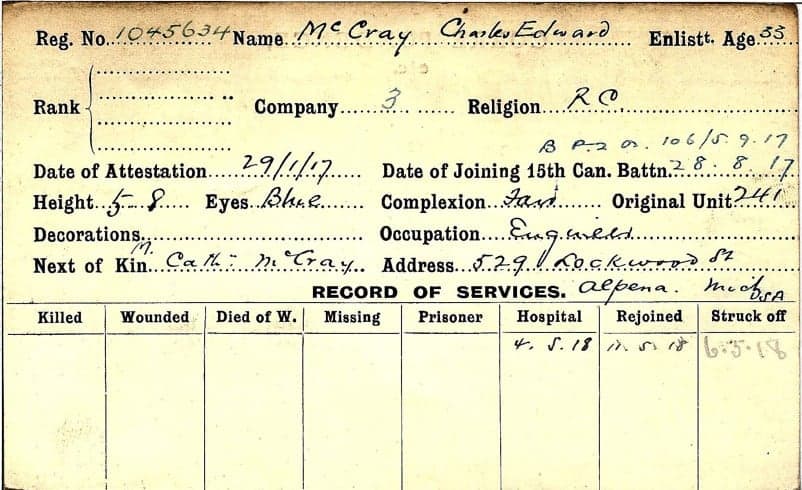 Reg. No. 1045634 Name McCray Charles Edward Enlistt. Age 33
Rank Company 3 Religion R C.
B P-2 O. 106/5.9.17
Date of Attestation 29/1/17 Date of Joining 15th Can. Battn. 28.8.17
Height 5-8 Eyes Blue Complexion Fair Original Unit 241
Decorations Occupation Engineer
Next of Kin M. Cath: McCray Address 529 Lockwood St
RECORD OF SERVICES. Alpena. Mich USA
Killed Wounded Died of W. Missing Prisoner Hospital Rejoined Struck off
4.5.18 11.5.18 6.5.18